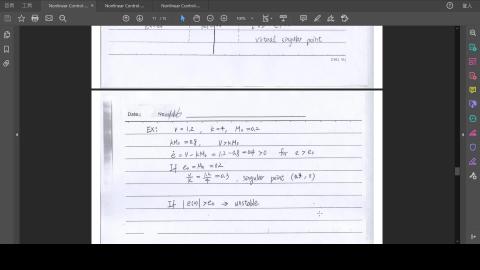 主页 工具 Nonlinear Control ... Nonlinear Control ... × Nonlinear Control ... 登入
11 / 15
virtual singular point
Date:
EX: V=1.2 , k=4, M₀=0.2
kM₀=0.8, V>kM₀
ė = V-kM₀ = 1.2-0.8=0.4>0 for e>e₀
If e₀=M₀=0.2
V/k = 1.2/4 =0.3 , singular point
If |e(0)|>e₀ → unstable